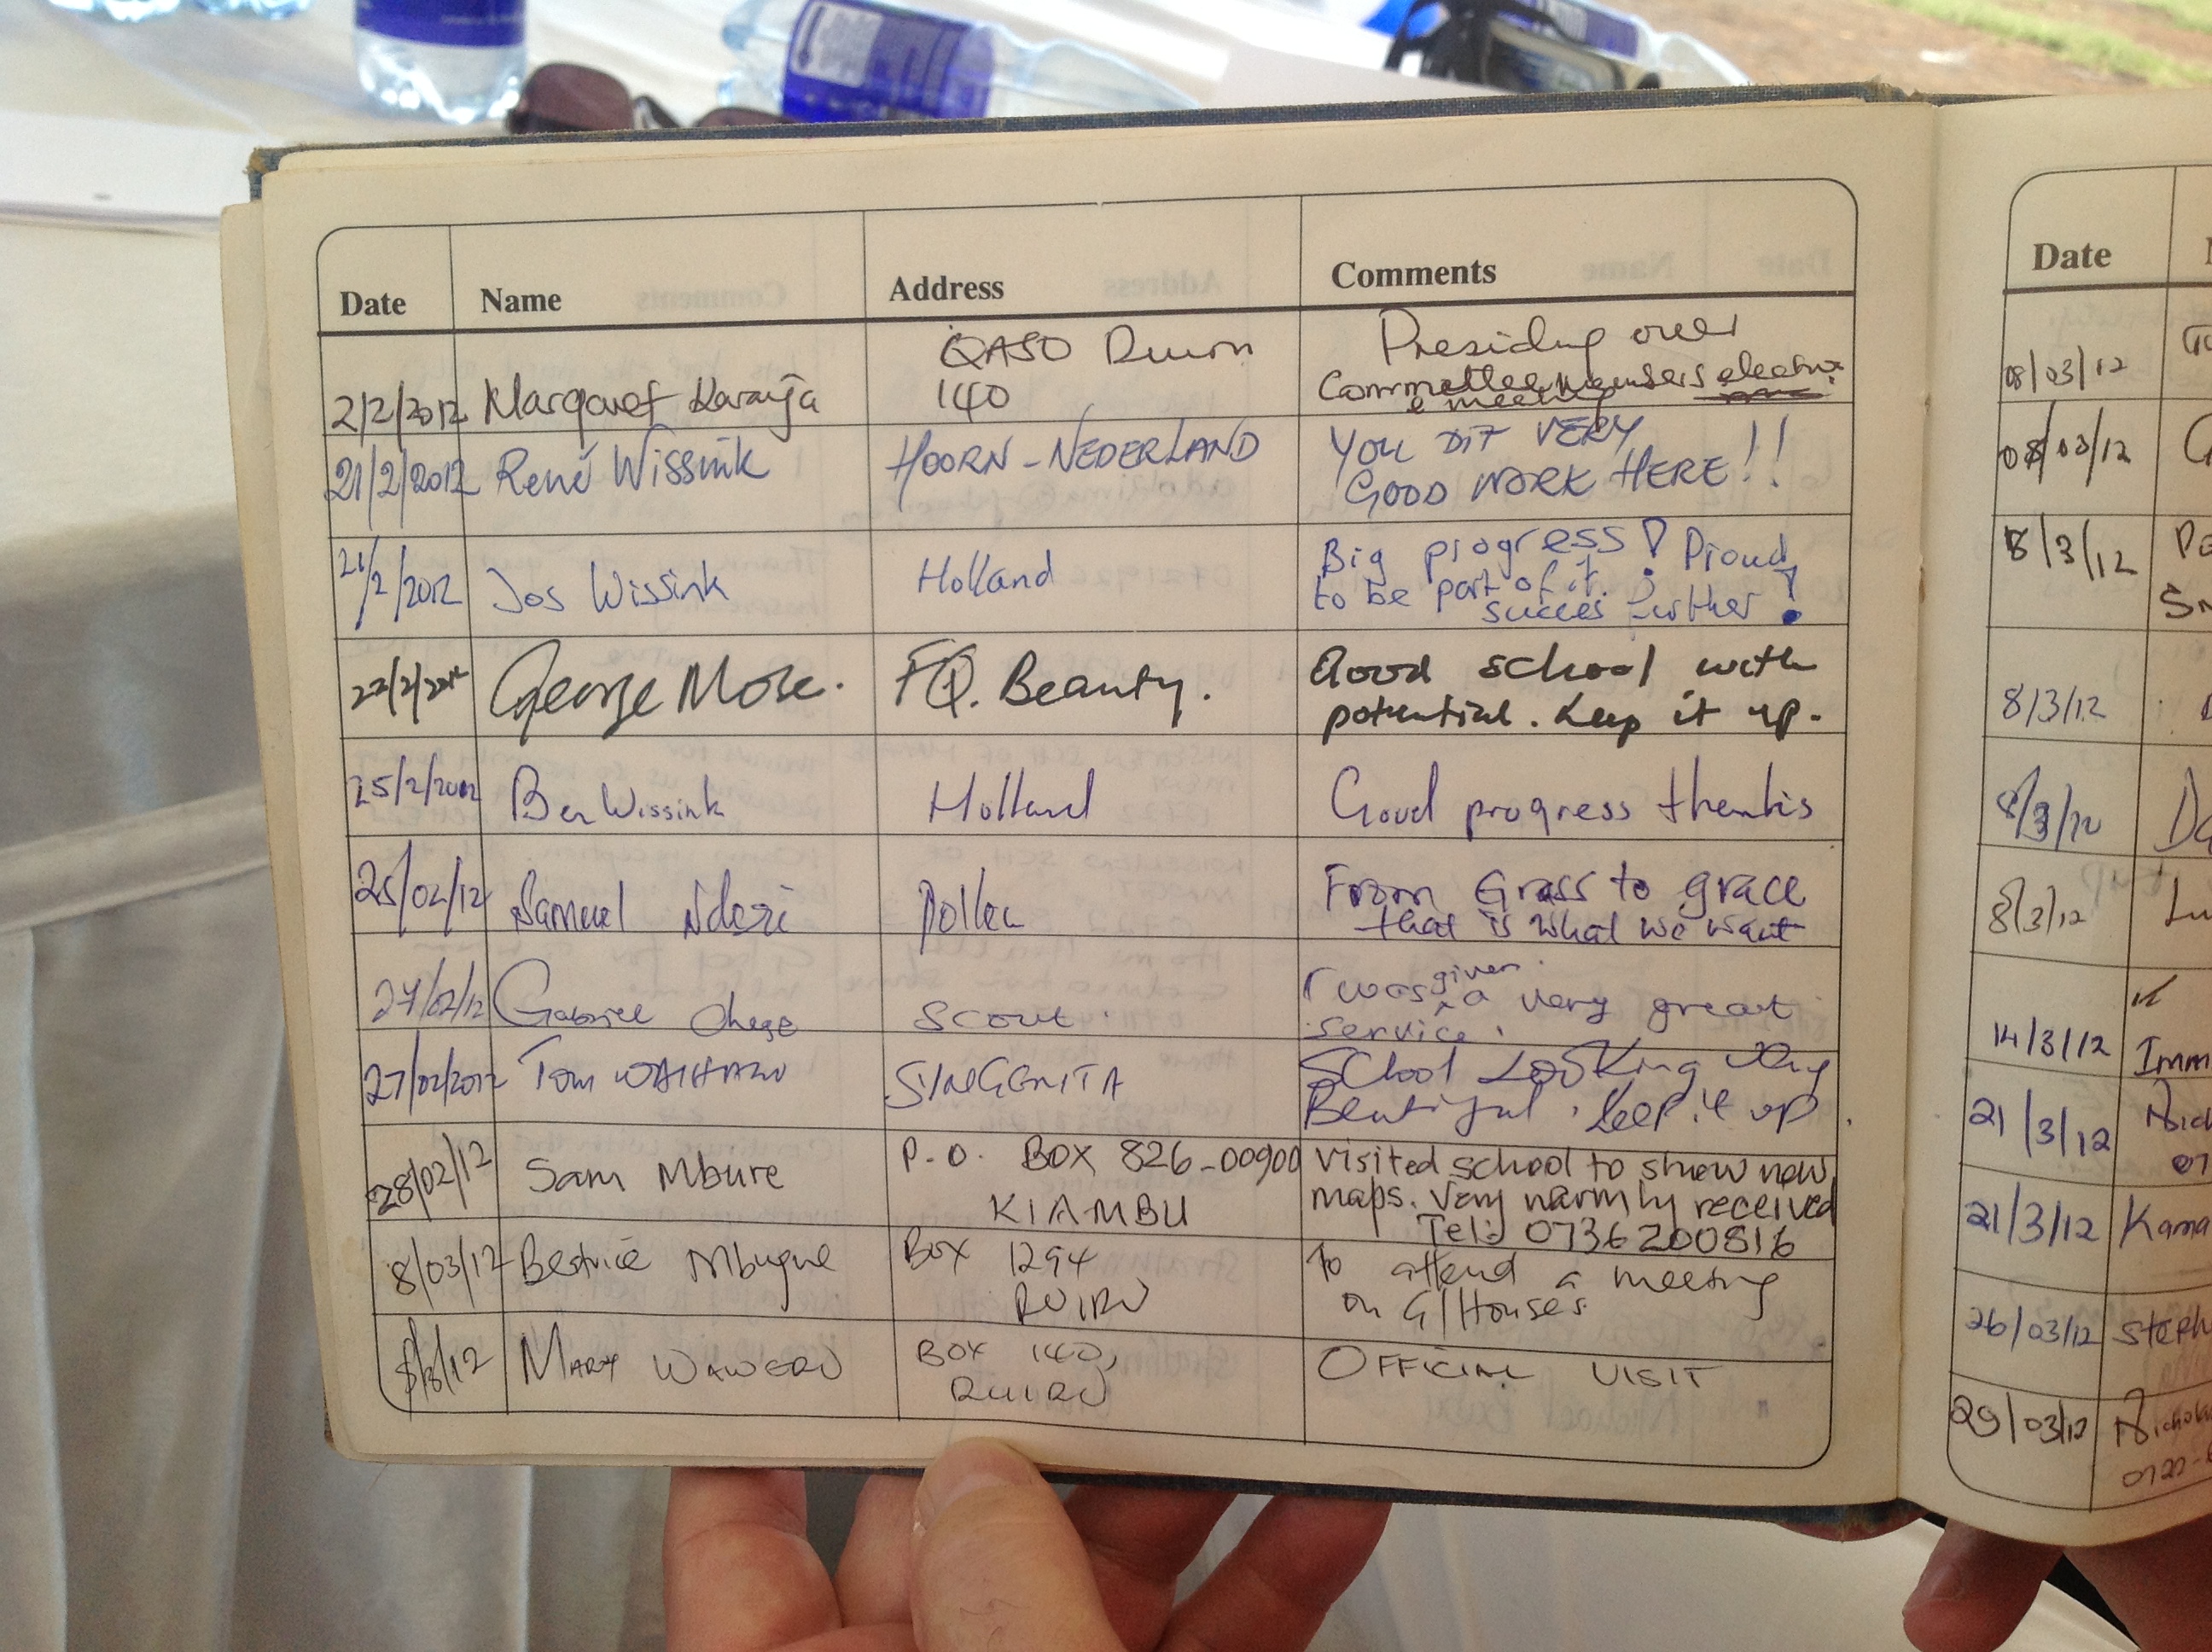 Date Name Address Comments
2/2/2012 Margaret Karanja QASO Ruiru 140 Presiding over
Committee members election
e meeting
21/2/2012 René Wissink HOORN - NEDERLAND YOU DIT VERY
GOOD WORK HERE!!
21/2/2012 Jos Wissink Holland Big progress! Proud
to be part of it.
succes further!
22/2/2012 George More. FQ. Beauty. Good school with
potential. Keep it up.
25/2/2012 Ben Wissink Holland Good progress thenks
25/02/12 Samuel Nderi From Grass to grace
that is what we want
27/02/12 Gabriel Chege Scout. I was given a very great
service.
27/02/2012 Tom SYNGENTA SCHOOL LOOKing Very
Beautiful. Keep it up.
28/02/12 Sam Mbure P.O. BOX 826-00900
KIAMBU
Visited school to show new
maps. Very warmly received
Tel: 0736200816
8/03/12 Beatrice Mbugue Box 1294
RUIRU
To attend a meeting
on G/Houses.
8/3/12 MARY WAWERU BOX 140,
RUIRU
OFFICIAL VISIT
Date
08/03/12
08/03/12
8/3/12
8/3/12
8/3/12
8/3/12
14/3/12 Imm
21/3/12
21/3/12 Kama
26/03/12 Steph
29/03/12 Nichola